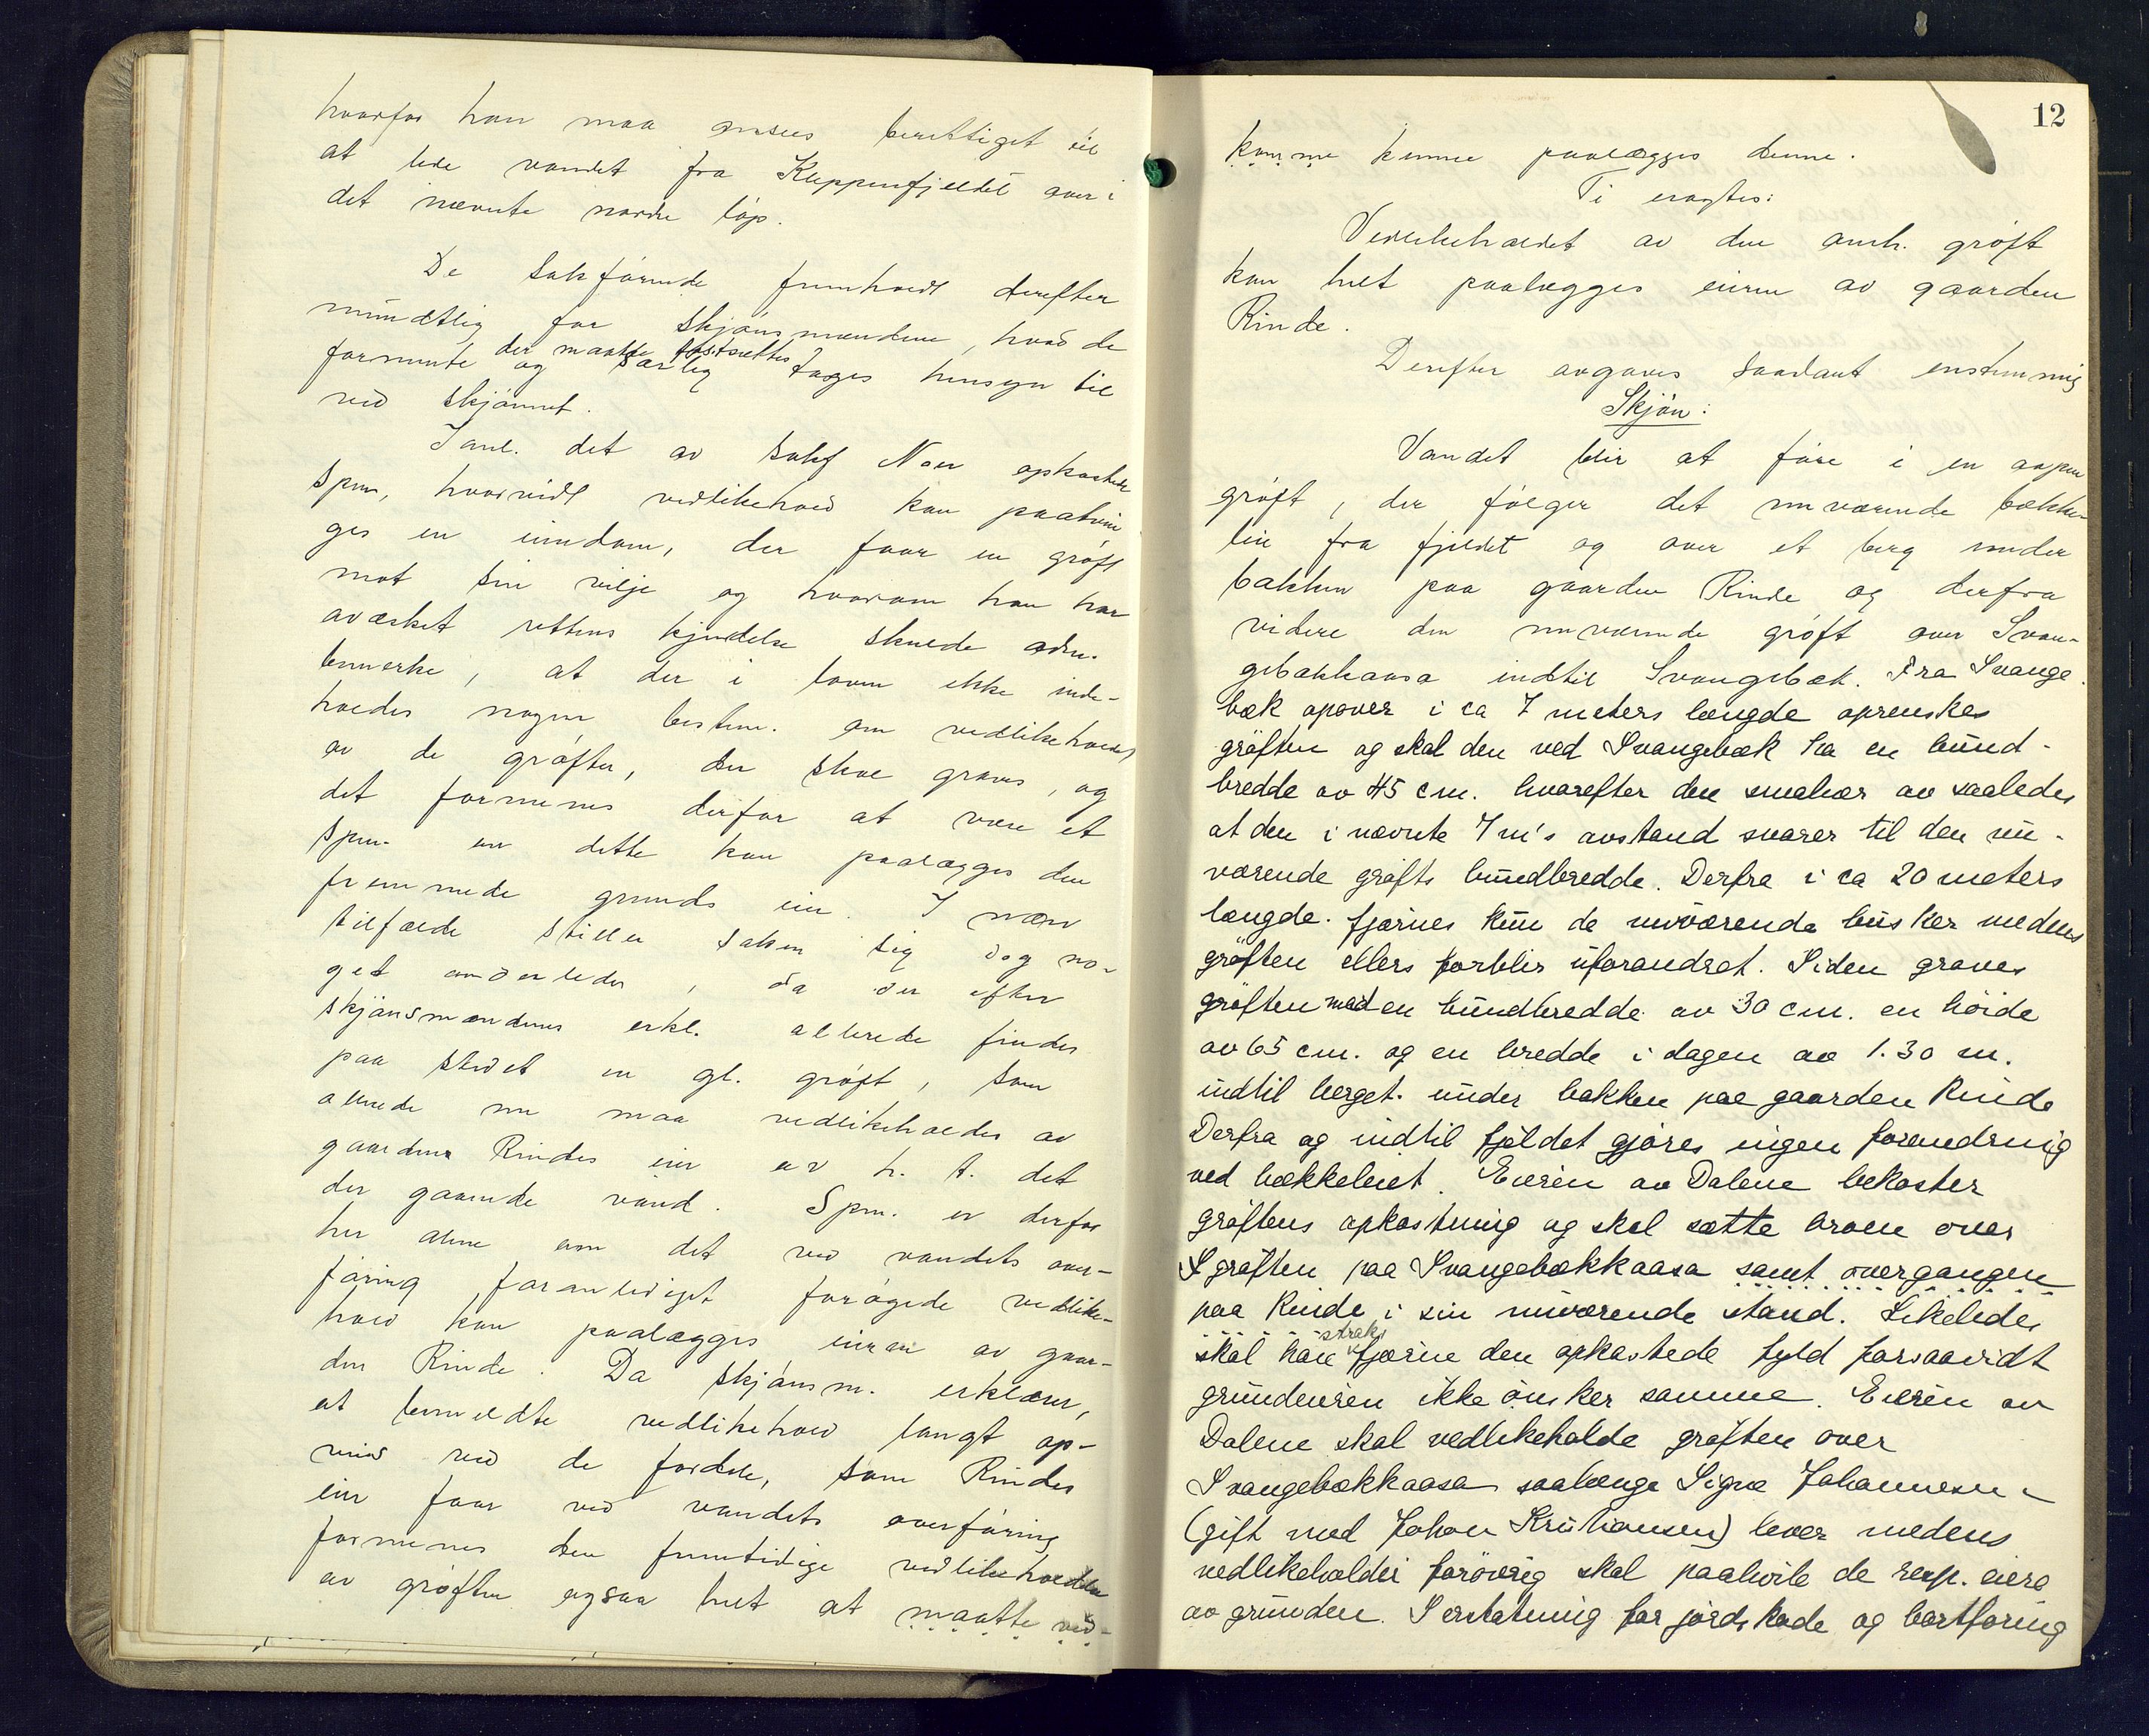 hvorfor han maa ansees berettiget til
at lede vandet fra Kleppenfjeldet over i
det nævnte nordre løp.
De sakførende fremholdt derefter
mundtlig for skjønsmændene, hvad de
formente der maatte fastsættes
og særlig tages hensyn til
ved skjønnet.
I anl. det av sakf Noer opkastede
spm, hvorvidt vedlikehold kan paatvin
ges en eiendom, der faar en grøft
mot sin vilje og hvorom han har
avæsket rettens kjendelse skulde adm.
bemerke, at der i loven ikke inde-
holdes nogen bestem. om vedlikeholdet
av de grøfter, der skal graves, og
det formenes derfor at være et
spm. om dette kan paalægges den
fremmede grunds eier. I nærv
tilfælde stiller saken sig dog no-
get anderledes, da der efter
skjønsmændenes erkl. allerede findes
paa stedet en gl. grøft, som
allerede nu maa vedlikeholdes av
gaarden Rindes eier av h. t. det
der gaaende vand. Spm. er derfor
her alene om det ved vandets over-
føring foranlediget forøgede vedlike-
hold kan paalægges eieren av gaar-
den Rinde. Da skjønsm. erklærer,
at bemeldte vedlikehold langt op-
veies ved de fordele, som Rindes
eier faar ved vandets overføring
formenes den fremtidige vedlikeholdelse
av grøften ogsaa helt at maatte ved-
12
komme kunne paalægges denne.
Ti eragtes:
Vedlikeholdet av den omh. grøft
kan helt paalægges eieren av gaarden
Rinde.
Derefter avgaves saadant enstemmig
Skjøn:
Vandet blir at føre i en aapen
grøft, der følger det nuværende bække-
leie fra fjeldet og over et berg under
bakken paa gaarden Rinde og derfra
videre den nuværende grøft over Svan-
gebækkaasa indtil Svangebæk. Fra Svange
bæk opover i ca 7 meters længde oprenskes
grøften og skal den ved Svangebæk ha en bund-
bredde av 45 cm. hvorefter den smalner av saaledes
at den i nævnte 7 m's avstand svarer til den nu-
værende grøfts bundbredde. Derfra i ca 20 meters
længde. fjærnes kun de nuværende busker medens
grøften ellers forblir uforandret. Siden graves
grøften med en bundbredde av 30 cm. en høide
av 65 cm. og en bredde i dagen av 1.30 m.
indtil berget under bakken paa gaarden Rinde
Derfra og indtil fjeldet gjøres ingen forandring
ved bækkeleiet. Eieren av Dalene bekoster
grøftens opkastning og skal sætte broen over
grøften paa Svangebækkaasa samt overgangen
paa Rinde i sin nuværende stand. Likeledes
skal han straks fjærne den opkastede fyld forsaavidt
grundeieren ikke ønsker samme. Eieren av
Dalene skal vedlikeholde grøften over
Svangebækkaasa saalænge Signe Johannesen
(gift med Johan Kristiansen) lever medens
vedlikeholdet forøvrig skal paahvile de resp. eiere
av grunden. I erstatning for jordskade og bortføring